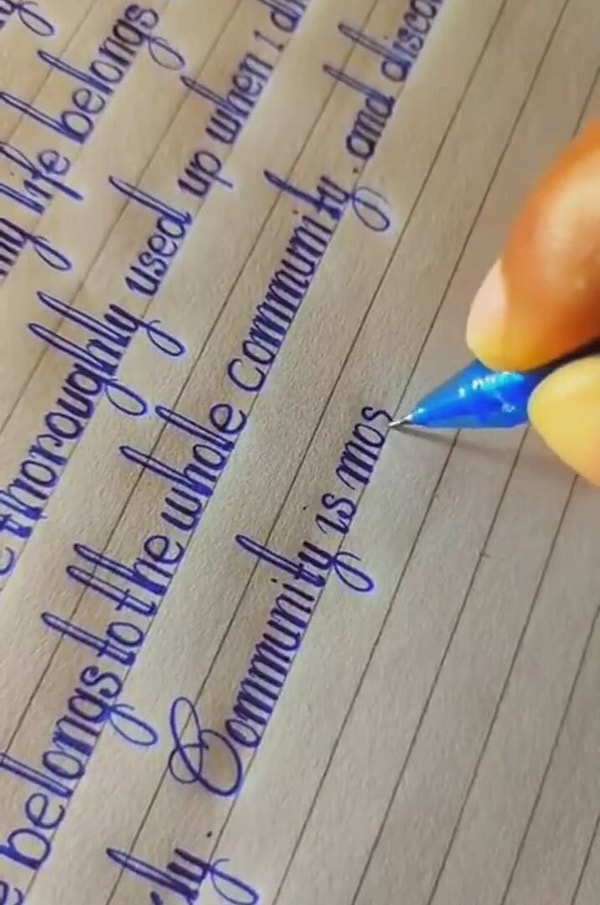 life belongs
thoroughly used up when i di
e belongs to the whole community. and disco
ly. Community is mos